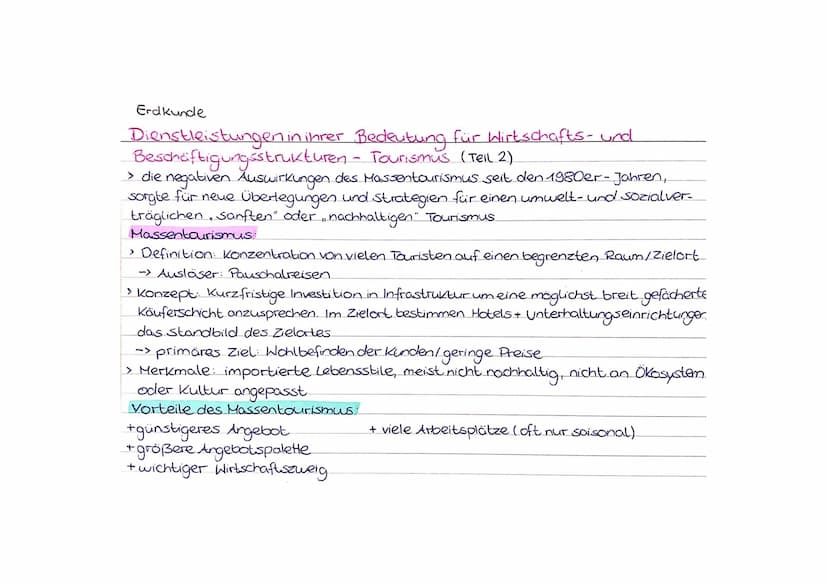 Erdkunde
Dienstleistungen in ihrer Bedeutung für Wirtschafts- und
Beschäftigungsstrukturen - Tourismus (Teil 2)
> die negativen Auswirkungen des Massentourismus seit den 1980er-Jahren,
sorgte für neue Überlegungen und Strategien für einen umwelt- und sozialver-
träglichen „sanften" oder „nachhaltigen" Tourismus
Massentourismus:
> Definition: Konzentration von vielen Touristen auf einen begrenzten Raum/Zielort
-> Auslöser: Pauschalreisen
> Konzept: Kurzfristige Investition in Infrastruktur um eine möglichst breit gefächerte
Käuferschicht anzusprechen. Im Zielort bestimmen Hotels + Unterhaltungseinrichtungen
das Standbild des Zielortes
-> primäres Ziel: Wohlbefinden der Kunden/geringe Preise
> Merkmale: importierte Lebensstile, meist nicht nachhaltig, nicht an Ökosystem
oder Kultur angepasst
Vorteile des Massentourismus:
+günstigeres Angebot + viele Arbeitsplätze (oft nur saisonal)
+größere Angebotspalette
+wichtiger Wirtschaftszweig